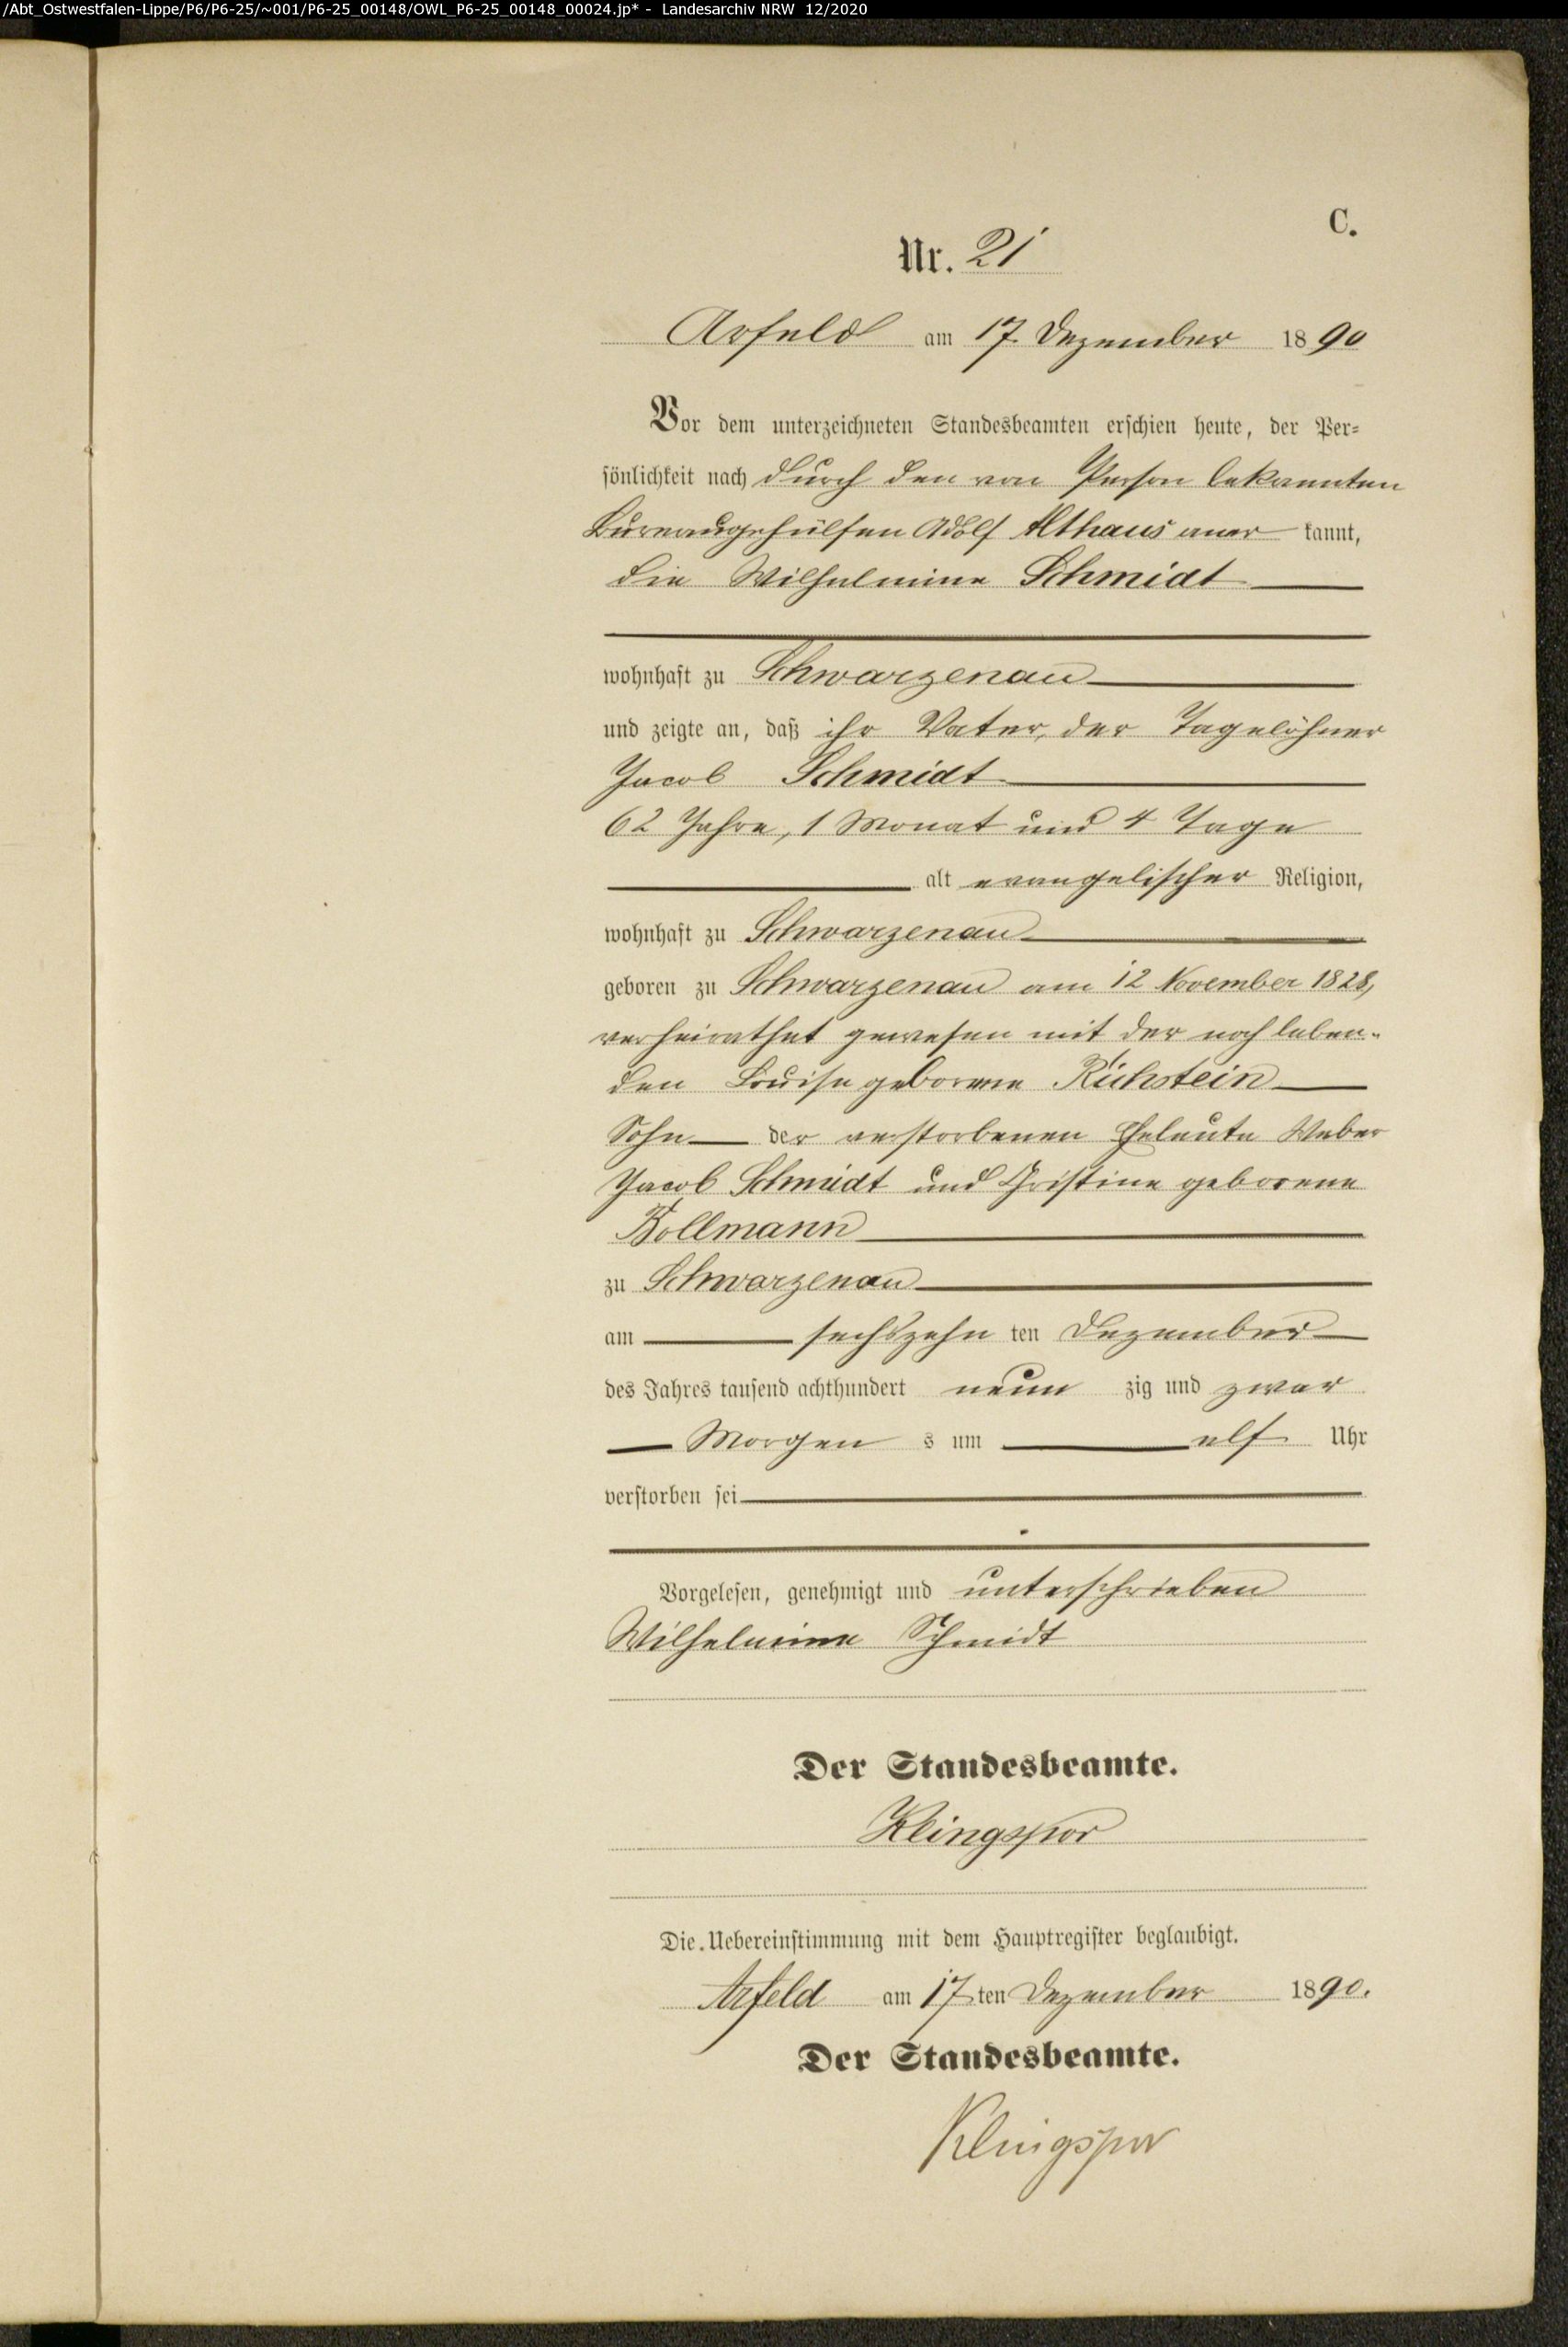 /Abt_Ostwestfalen-Lippe/P6/P6-25/~001/P6-25_00148/OWL_P6-25_00148_00024.jp* - Landesarchiv NRW 12/2020
C.
Nr. 21
Arfeld am 17. Dezember 1890
Vor dem unterzeichneten Standesbeamten erschien heute, der Per-
sönlichkeit nach durch den von Person bekannten
Bureaugehülfen Adolf Althaus aner kannt,
die Wilhelmine Schmidt
wohnhaft zu Schwarzenau
und zeigte an, daß ihr Vater, der Tagelöhner
Jacob Schmidt
62 Jahre, 1 Monat und 4 Tage
alt evangelischer Religion,
wohnhaft zu Schwarzenau
geboren zu Schwarzenau am 12 November 1828,
verheirathet gewesen mit der noch leben-
den Louise geborene Rüchstein
Sohn der verstorbenen Eheleute Weber
Jacob Schmidt und Christine geborene
Bollmann
zu Schwarzenau
am sechszehn ten Dezember
des Jahres tausend achthundert neun zig und zwar
Morgen s um elf Uhr
verstorben sei
Vorgelesen, genehmigt und unterschrieben
Wilhelmine Schmidt
Der Standesbeamte.
Klingspor
Die Uebereinstimmung mit dem Hauptregister beglaubigt.
Arfeld am 17ten Dezember 1890.
Der Standesbeamte.
Klingspor